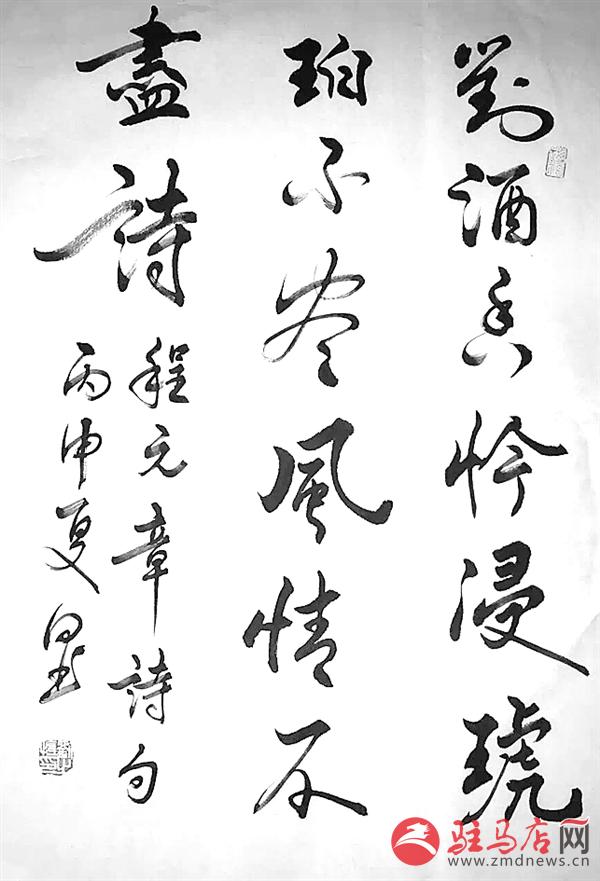 對酒香怜浸琥
珀不風情不
盡詩
程元章詩句
丙申夏
驻马店网
www.zmdnews.cn